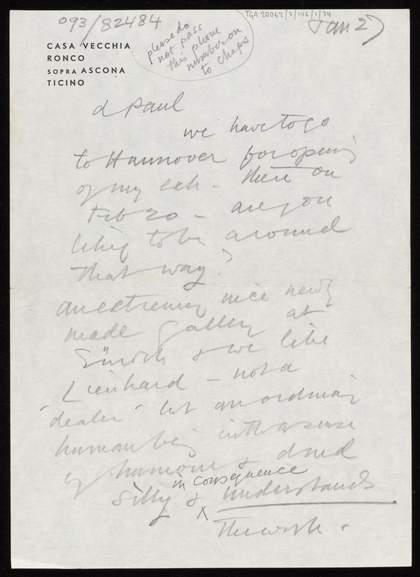 093/82484
please do
not pass
this phone
number on
to chaps
TGA 20062/
Jan 27
CASA VECCHIA
RONCO
SOPRA ASCONA
TICINO
d Paul
we have to go
to Hannover for opening
of my exh. there on
Feb 20 – are you
likely to be around
that way?
an extremely nice newly
made gallery at
Zürich & we like
Lienhard – not a
"dealer" but an ordinary
human being with a sense
of humour &
in consequence
silly & understands
the work.